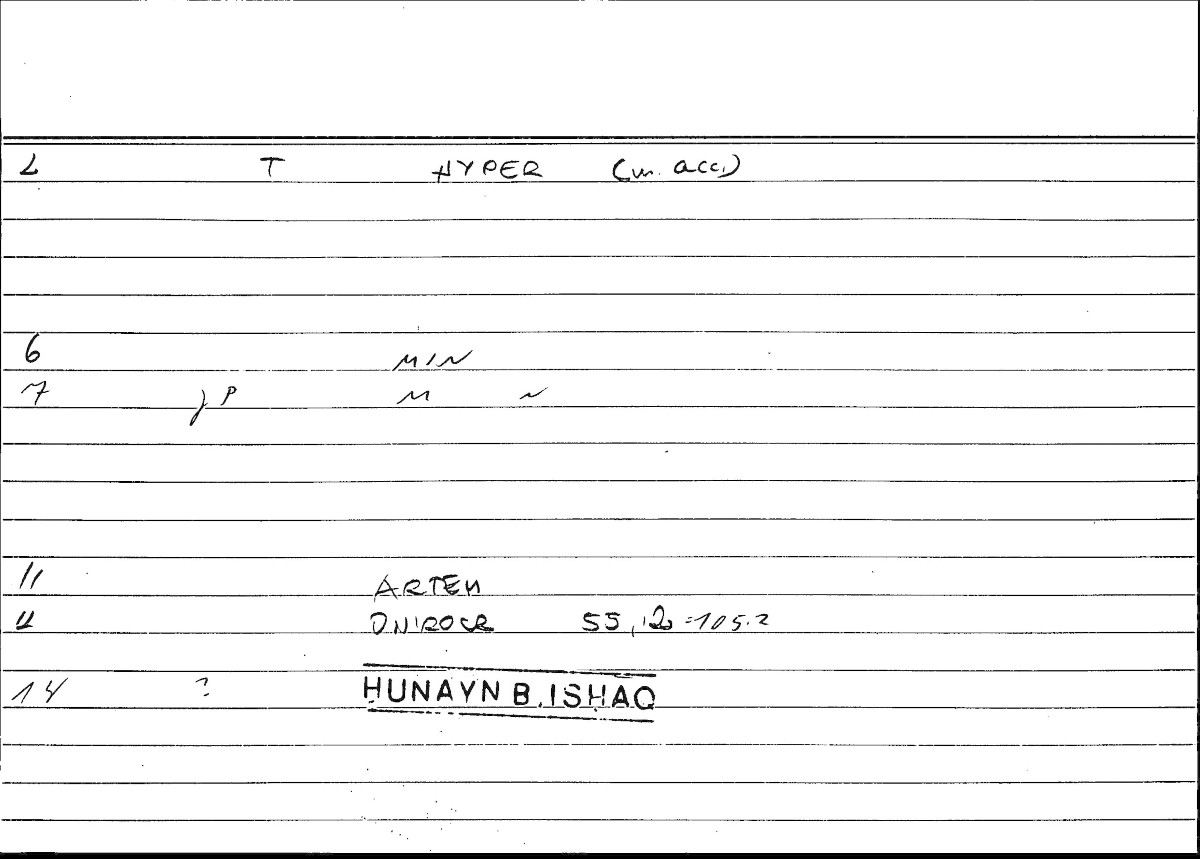 2 T HYPER (m. acc.)
6 MIN
7 γP M N
11 ARTEM
11 ONIROCR 55, 12 = 105.2
14 ? HUNAYN B. ISHAQ